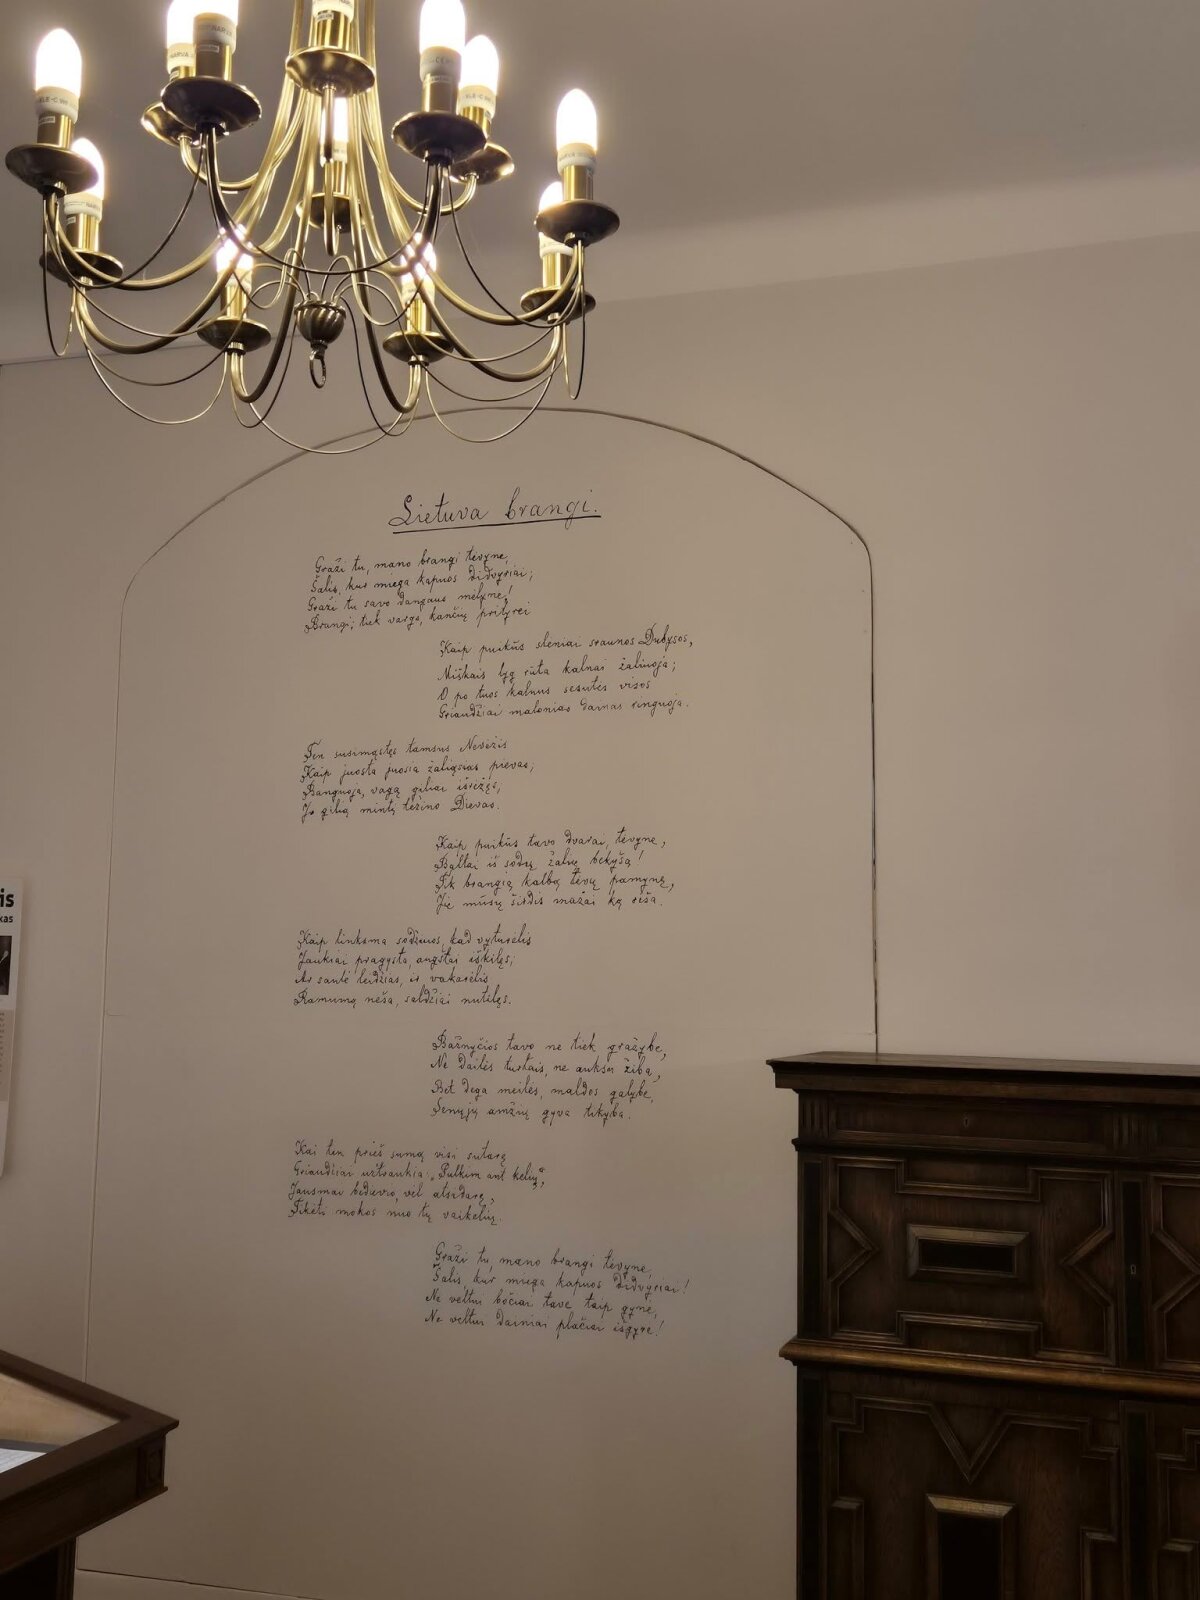 Lietuva brangi.
Graži tu, mano brangi tėvyne,
Šalis, kur miega kapuos didvyriai;
Graži tu savo dangaus mėlyne!
Brangi; tiek vargo, kančių prityrei
Kaip puikūs slėniai sraunios Dubysos,
Miškais lyg rūta kalnai žaliuoja;
O po tuos kalnus sesutės visos
Griaudžiai malonias dainas ringuoja.
Ten susimąstęs tamsus Nevėžis
Kaip juosta juosia žaliąsias pievas;
Banguoja, vagą giliai išrėžęs,
Jo gilią mintį težino Dievas.
Kaip puikūs tavo dvarai, tėvyne,
Baltai iš sodų žalių bekyšą!
Tik brangią kalbą tėvų pamynę,
Jie mūsų širdis mažai ką riša.
Kaip linksma sodžiuos, kad vyturėlis
Jaukiai pragysta, augštai iškilęs;
Ar saulė leidžias, ir vakarėlis
Ramumą neša, saldžiai nutilęs.
Bažnyčios tavo ne tiek gražybe,
Ne dailės turtais, ne auksu žiba,
Bet dega meilės, maldos galybe,
Senųjų amžių gyva tikyba.
Kai ten prieš sumą visi sutarę
Griaudžiai užtraukia: „Pulkim ant kelių“,
Jausmai bedievio, vėl atsidarę,
Tikėti mokos nuo tų vaikelių.
Graži tu, mano brangi tėvyne,
Šalis, kur miega kapuos didvyriai!
Ne veltui bočiai tave taip gynė,
Ne veltui dainiai plačiai išgyrė!
is
kas